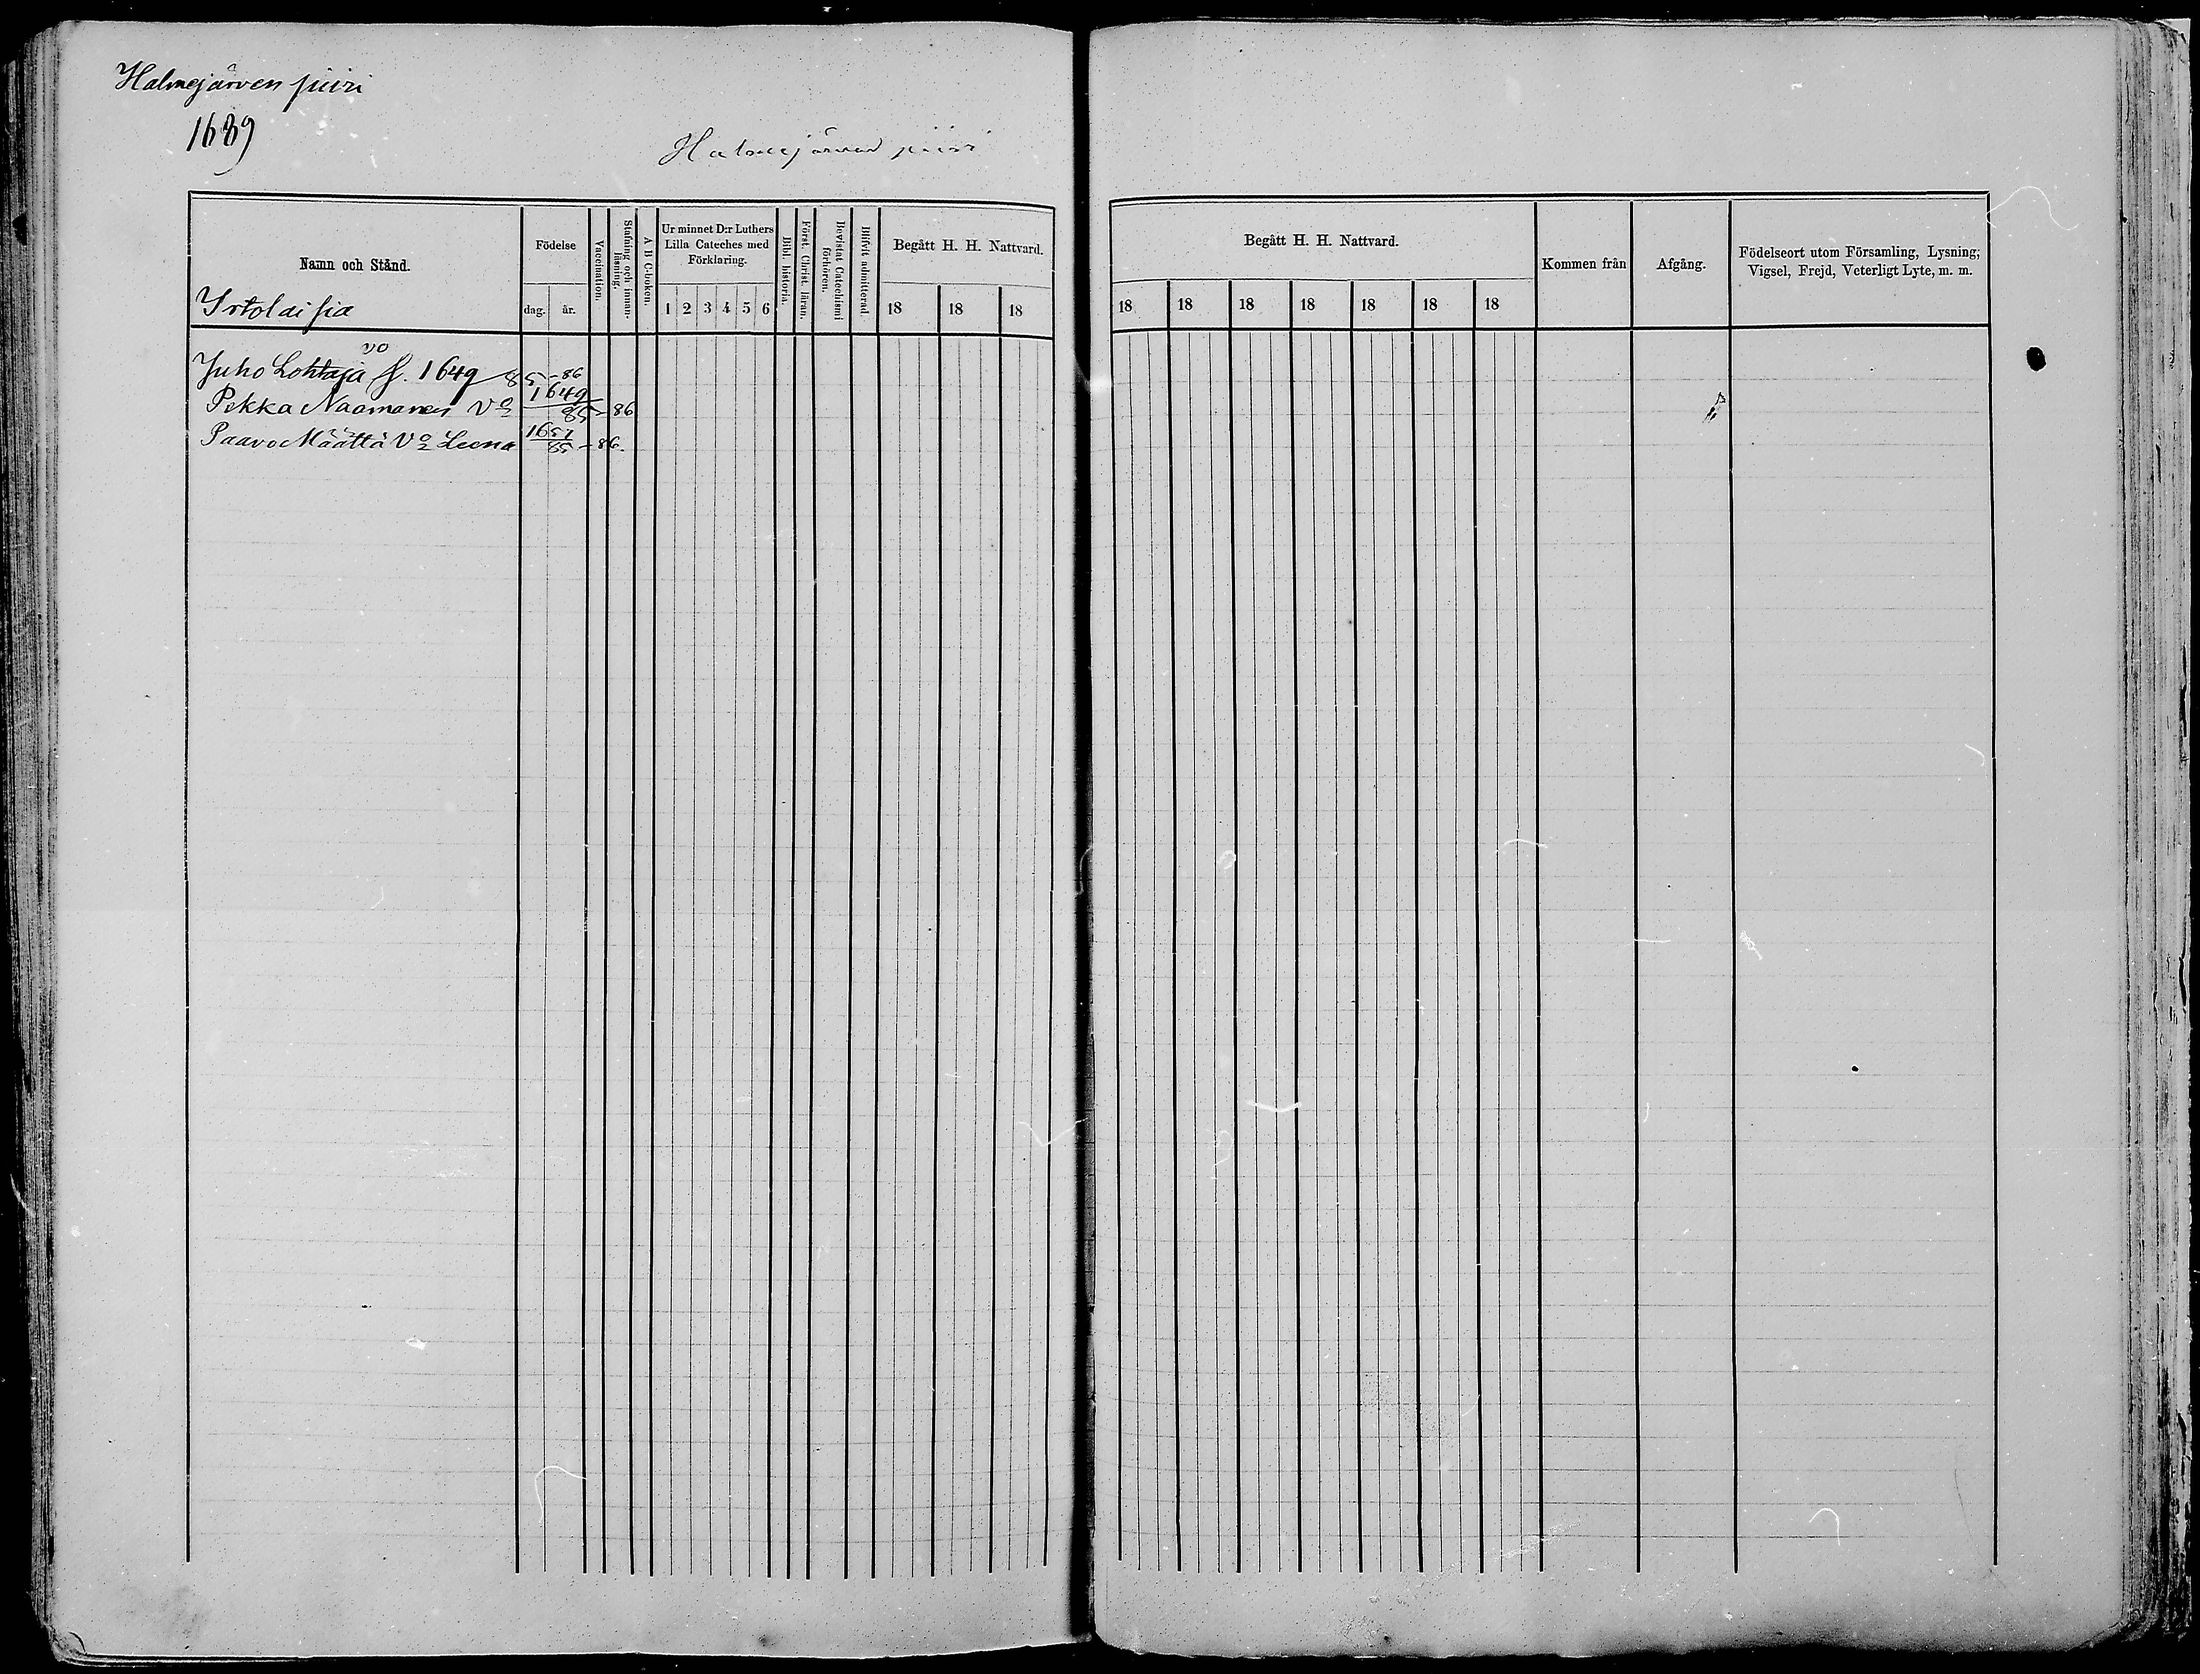 Halmejärven piiri
1689
Halmejärven piiri
Namn och Stånd.
Irtolaisia
Födelse
dag. år.
Vaccination.
Stafning och innanläsning.
A B C-boken.
Ur minnet D:r Luthers
Lilla Cateches med
Förklaring.
1 2 3 4 5 6
Bibl. historia.
Först. Christ. läran.
Bevistat Catechismi
förhören.
Blifvit admitterad.
Begått H. H. Nattvard.
18 18 18
Juho Lohtaja vo f. 1649 85-86
Pekka Naamanen Vo 1649/85-86
Paavo Määttä Vo Leena 1651/85-86.
Begått H. H. Nattvard.
18 18 18 18 18 18 18
Kommen från
Afgång.
Födelseort utom Församling, Lysning,
Vigsel, Frejd, Veterligt Lyte, m. m.